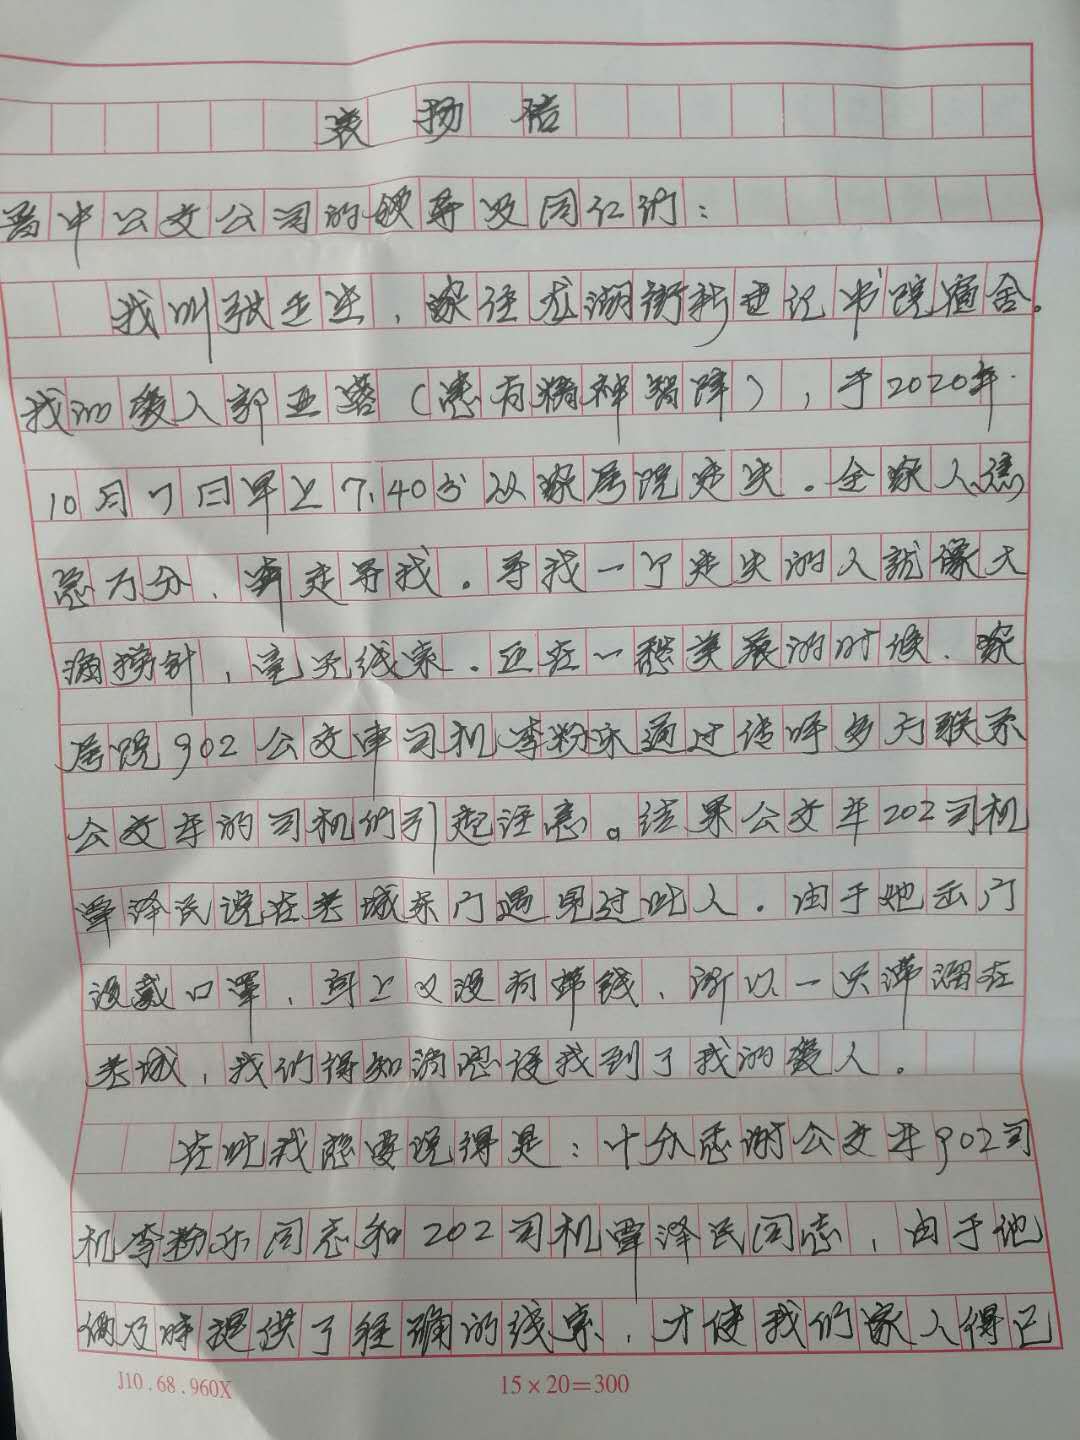 表扬信
晋中公交公司的领导及同仁们：
我叫张生生，家住龙湖街新建记书院宿舍。
我的爱人郭亚蓉（患有精神智障），于2020年
10月7日早上7.40分从家居院走失。全家人焦
急万分、奔走寻找。寻找一个走失的人就像大
海捞针，毫无线索。正在一愁莫展的时候、家
居院902公交车司机李粉乐通过传呼多方联系
公交车的司机们引起注意。结果公交车202司机
覃泽民说在老城东门遇见过此人。由于她出门
没戴口罩、身上又没有带钱、所以一天滞溜在
老城，我们得知消息后找到了我的爱人。
在此我想要说得是：十分感谢公交车902司
机李粉乐同志和202司机覃泽民同志，由于他
俩及时提供了准确的线索，才使我们家人得已
J10.68.960X
15×20=300